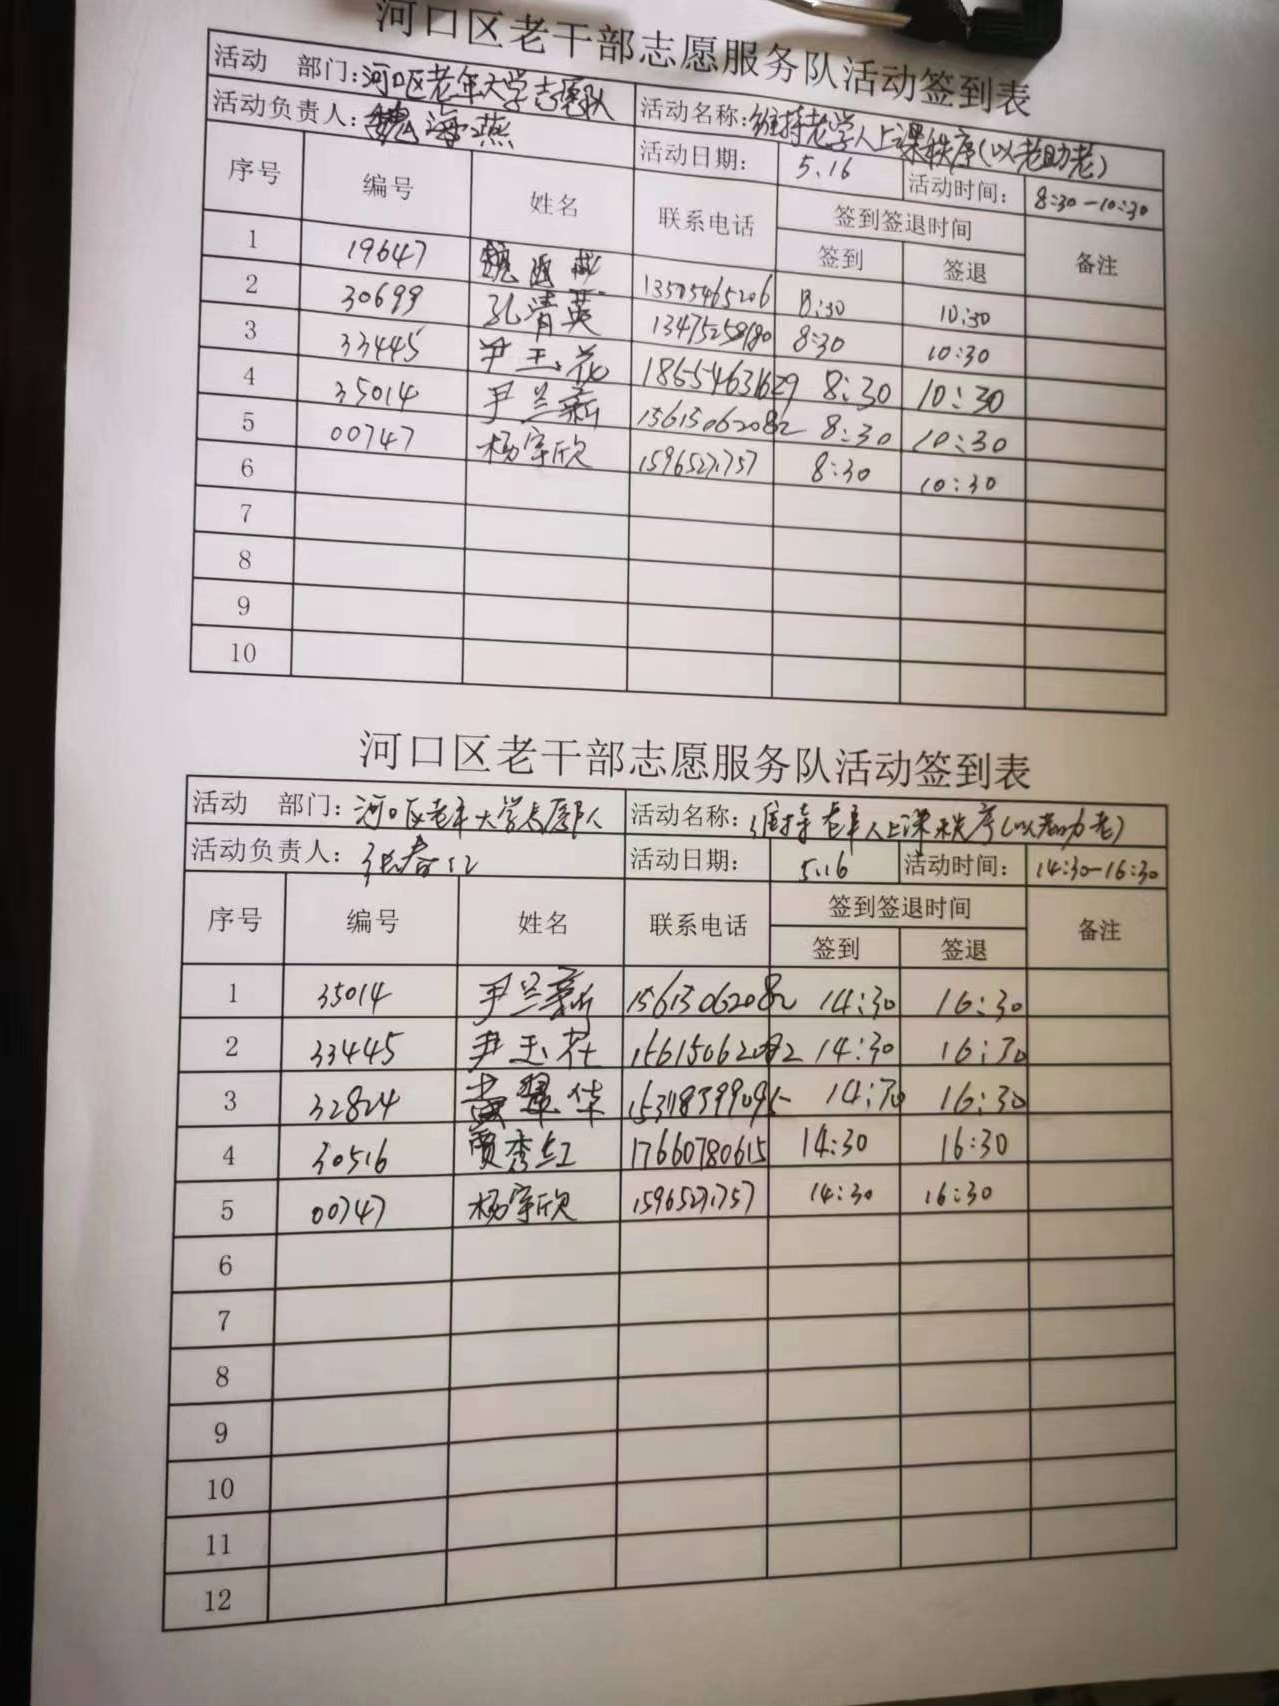 河口区老干部志愿服务队活动签到表
活动 部门：河口区老年大学志愿队 活动名称：维持老学人上课秩序(以老助老)
活动负责人：魏海燕 活动日期： 5.16 活动时间： 8:30-10:30
序号 编号 姓名 联系电话 签到签退时间 备注
签到 签退
1 19647 魏海燕 13505465206 8:30 10:30
2 30699 孔清英 13475258180 8:30 10:30
3 33445 尹玉花 18654631629 8:30 10:30
4 35014 尹兰新 15615062082 8:30 10:30
5 00747 杨宇欣 15965271757 8:30 10:30
6
7
8
9
10
河口区老干部志愿服务队活动签到表
活动 部门：河口区老年大学志愿队 活动名称：维持老年人上课秩序(以老助老)
活动负责人：张春江 活动日期： 5.16 活动时间： 14:30-16:30
序号 编号 姓名 联系电话 签到签退时间 备注
签到 签退
1 35014 尹兰新 15615062082 14:30 16:30
2 33445 尹玉花 15615062082 14:30 16:30
3 32824 翠华 14:30 16:30
4 30516 贾秀红 17660780615 14:30 16:30
5 00747 杨宇欣 15965271757 14:30 16:30
6
7
8
9
10
11
12